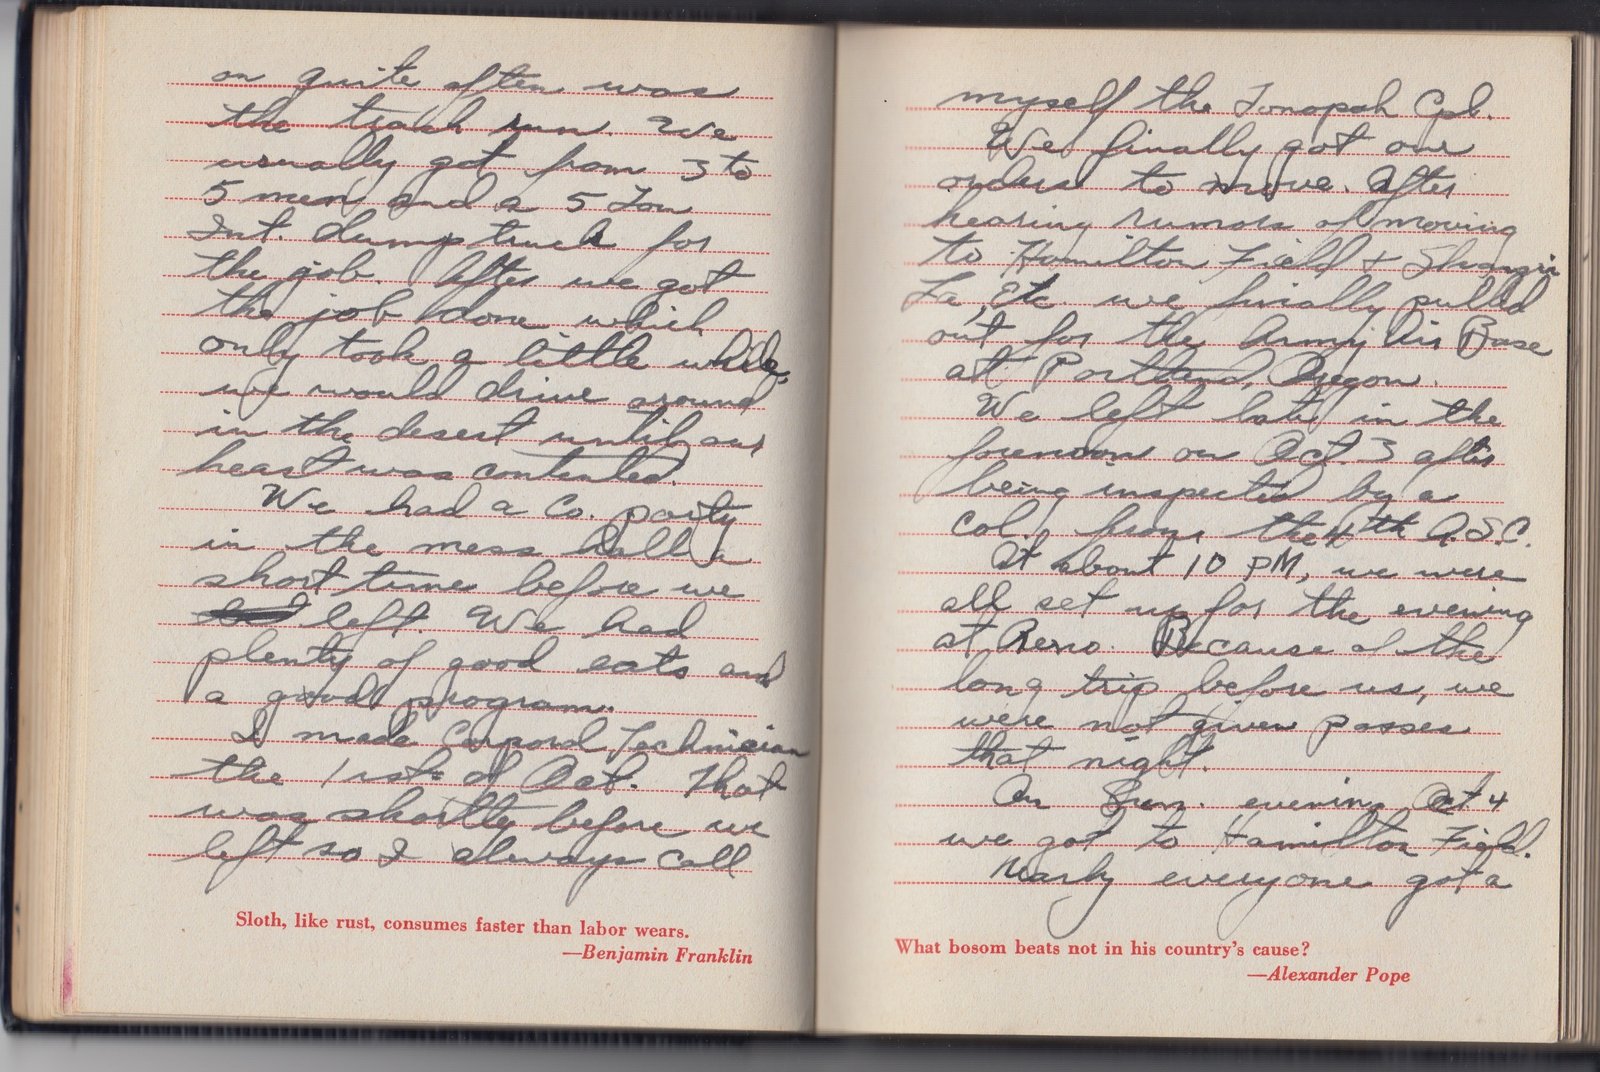 on quite often was
the trash run. We
usually got from 3 to
5 men and a 5 Ton
Int. dump truck for
the job. After we got
the job done which
only took a little while,
we would drive around
in the desert until our
heart was contented.
We had a Co. party
in the mess hall a
short time before we
left. We had
plenty of good eats and
a good program.
I made Corporal Technician
the 1rst of Oct. That
was shortly before we
left so I always call
Sloth, like rust, consumes faster than labor wears.
—Benjamin Franklin
myself the Tonopah Cpl.
We finally got our
orders to move. After
hearing rumors of moving
to Hamilton Field & Shangri
La, etc we finally pulled
out for the Army Air Base
at Portland, Oregon.
We left late in the
forenoon on Oct. 3 after
being inspected by a
Col. from the 4th A.S.C.
At about 10 PM, we were
all set up for the evening
at Reno. Because of the
long trip before us, we
were not given passes
that night.
On Sun. evening Oct 4
we got to Hamilton Field.
Nearly everyone got a
What bosom beats not in his country's cause?
—Alexander Pope